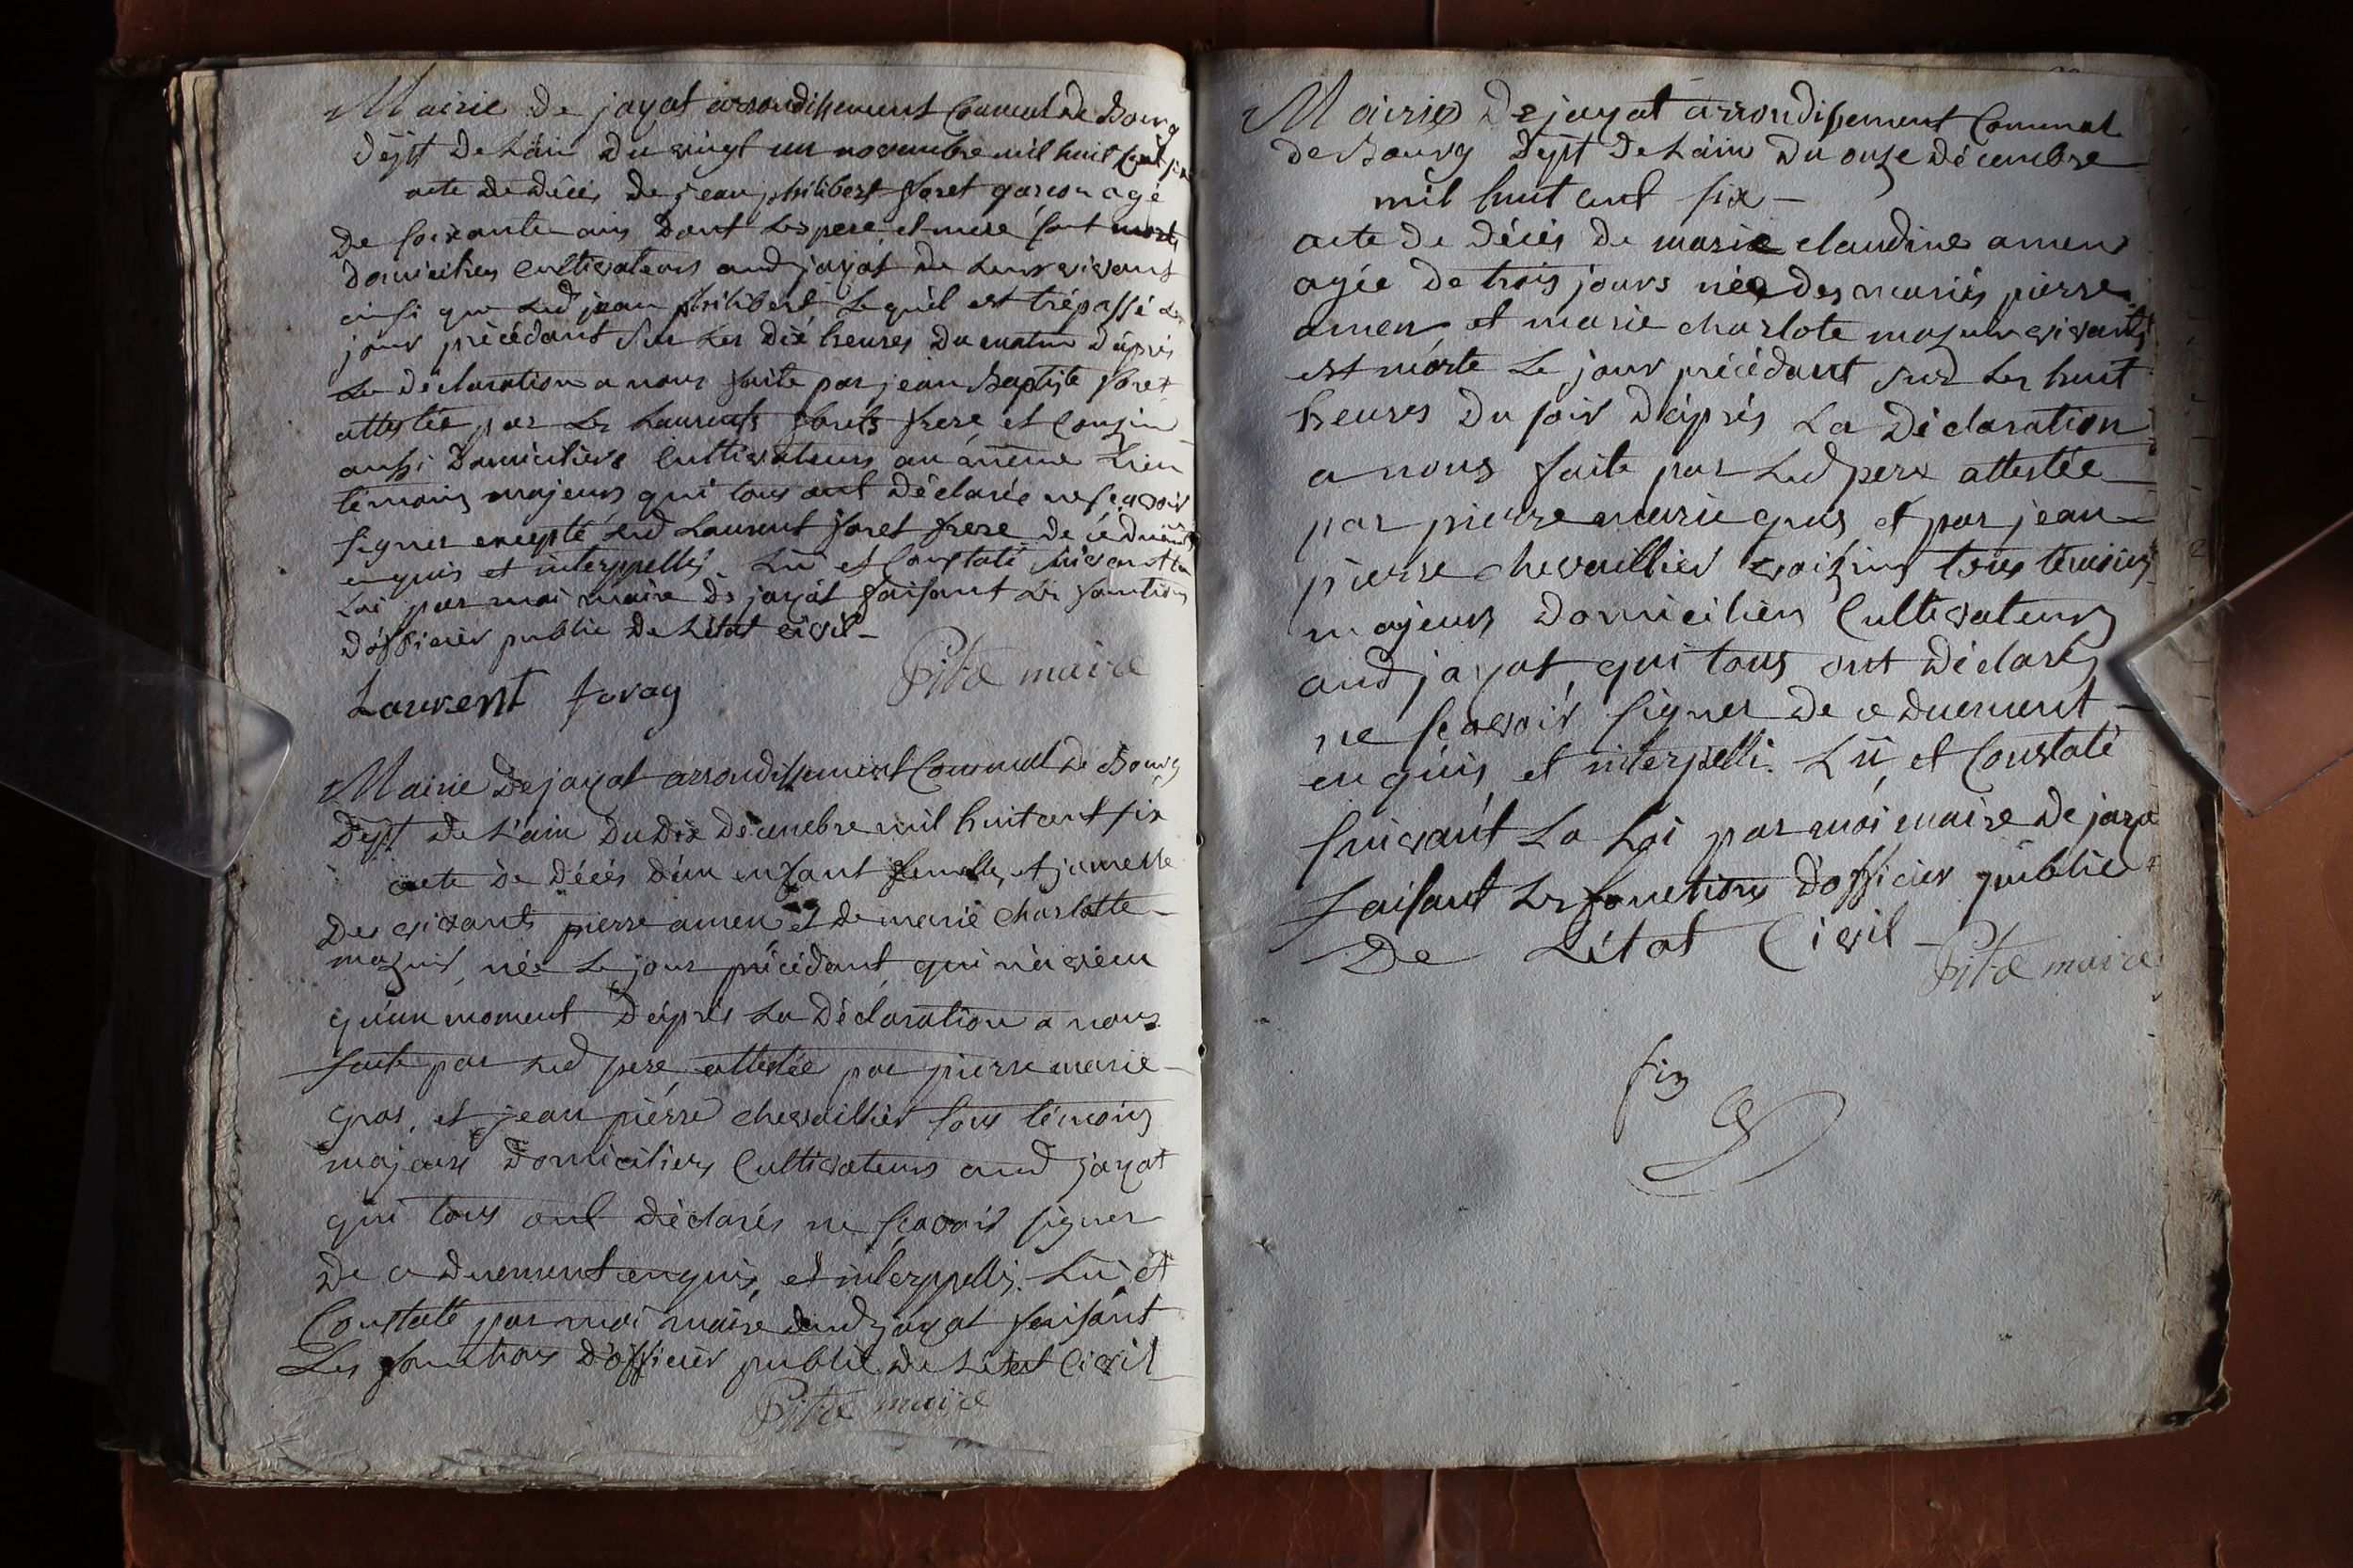 Mairie de jayat arrondissement Communal de Bourg
Dept De L'ain Du vingt un novembre mil huit cent six
acte de décés de jean philibert foret garçon agé
De soixante ans Dont Les pere et mere sont morts
Domiciliés Cultivateurs aud jayat de Leur vivant
ainsi que Led jean philibert, Lequel est trépassé Le
jour précédant sur Les dix heures Du matin D'après
La déclaration a nous faite par jean Baptiste foret
attestée par Les Laurents forets frere et Cousin
aussi Domiciliers Cultivateurs au même Lieu
témoins majeurs qui tous ont déclarés ne sçavoir
signer excepté Led Laurent foret frere de ce duement
enquis et interppellés. Lû et Constaté suivant La
Loi par moi maire de jayat faisant Les fonctions
d'officier public De L'état civil -
Laurent foray
Pitre maire
Mairie De jayat arrondissement Communal de Bourg
Dept de L'ain Du Dix décembre mil huit cent six
acte de décés d'un enfant femelle, et jumelle
Des vivants pierre amen et de marie charlotte
mazuir, née Le jour précédant, qui n'a vécu
qu'un moment D'après La Déclaration a nous
faite par Led pere, attestée par pierre marie
gras, et jean pierre chevaillier tous témoins
majeurs Domiciliers Cultivateurs aud jayat
qui tous ont déclarés ne sçavoir signer
De ce duement enquis, et interppellés. Lû, et
Constaté par moi maire dud jayat faisant
Les fonctions d'officier public de L'état Civil
Pitre maire
Mairie De jayat arrondissement Communal
de Bourg Dept De L'ain Du onze décembre
mil huit cent six -
acte de décés de marie claudine amen
agée De trois jours née des mariés pierre
amen et marie charlote mazuir vivants
est morte Le jour précédant sur Les huit
heures Du soir D'après La Déclaration
a nous faite par Led pere attestée
par pierre marie gras, et par jean
pierre chevaillier voizins tous témoins
majeurs Domiciliers Cultivateurs
aud jayat, qui tous ont déclarés
ne sçavoir signer de ce duement
enquis, et interpellé. Lû, et Constaté
suivant La Loi par moi maire De jayat
faisant Les fonctions d'officier public
De L'état Civil -
Pitre maire
fin